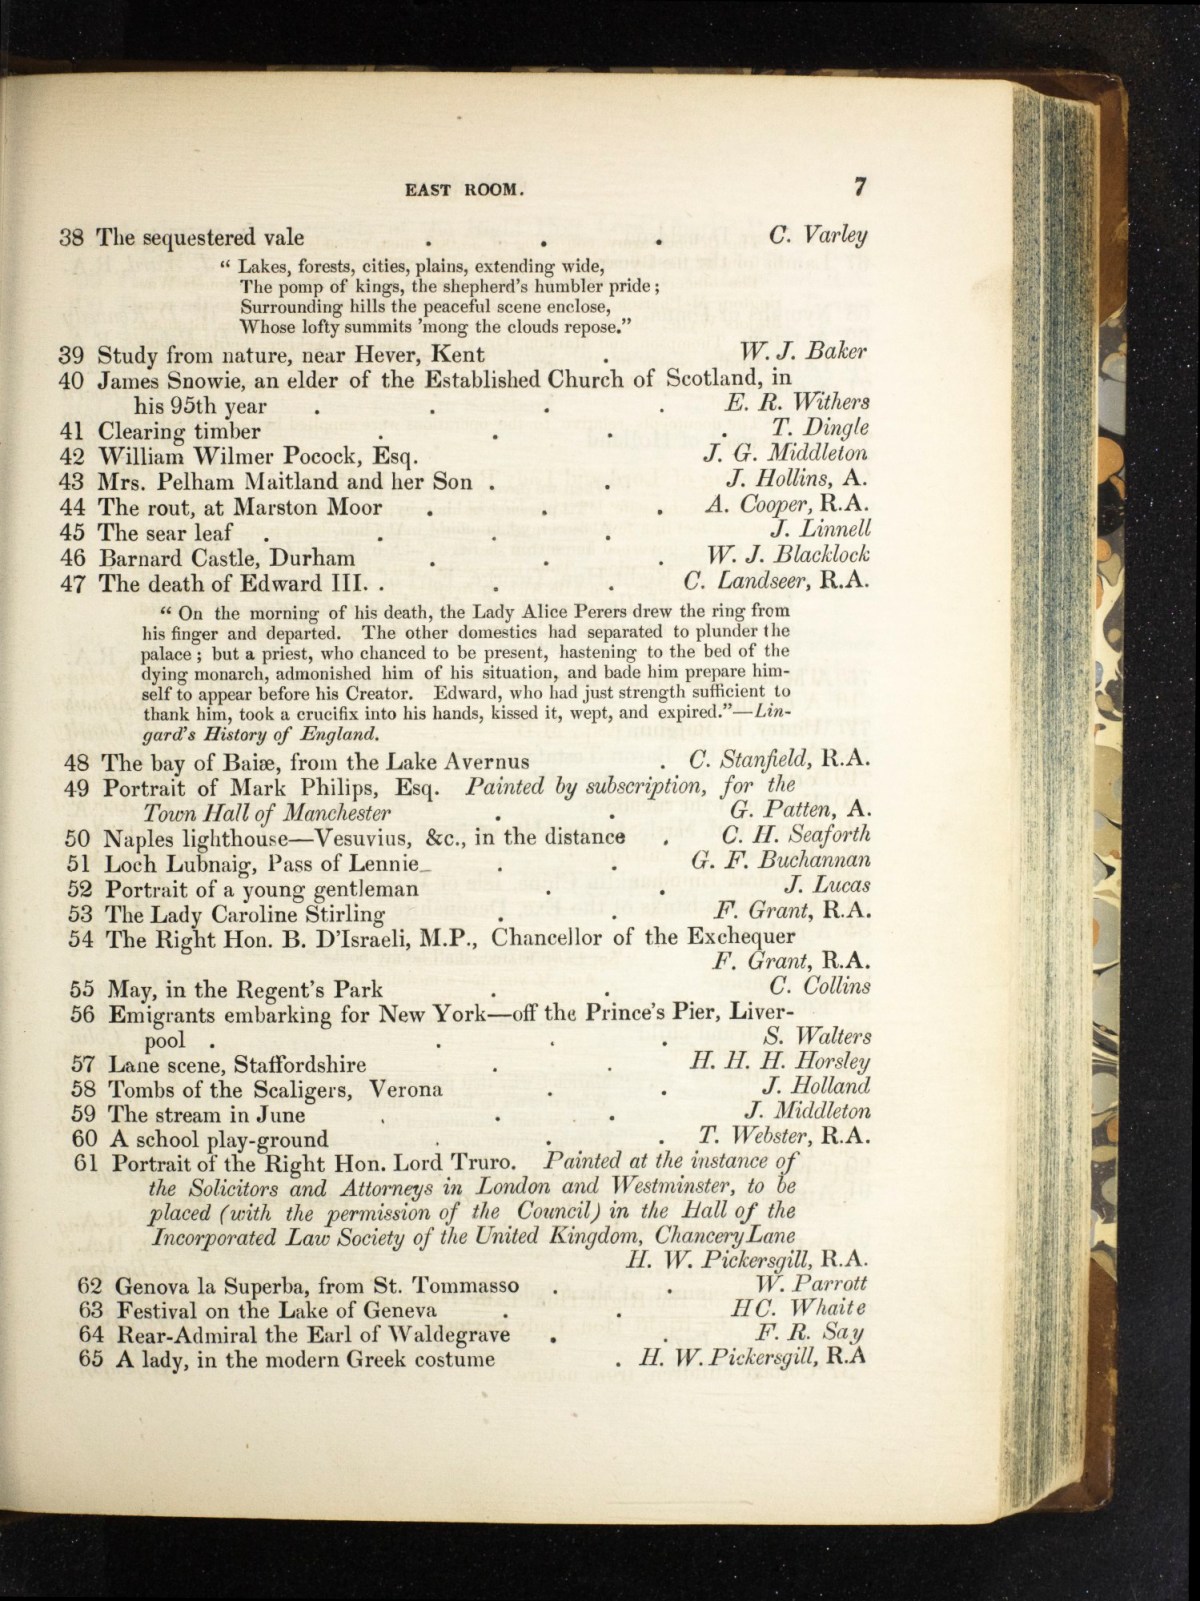 EAST ROOM. 7
38 The sequestered vale . . . C. Varley
“ Lakes, forests, cities, plains, extending wide,
The pomp of kings, the shepherd’s humbler pride ;
Surrounding hills the peaceful scene enclose,
Whose lofty summits ’mong the clouds repose.”
39 Study from nature, near Hever, Kent . W. J. Baker
40 James Snowie, an elder of the Established Church of Scotland, in
his 95th year . . . . E. R. Withers
41 Clearing timber . . . . T. Dingle
42 William Wilmer Pocock, Esq. J. G. Middleton
43 Mrs. Pelham Maitland and her Son . . J. Hollins, A.
44 The rout, at Marston Moor . . . A. Cooper, R.A.
45 The sear leaf . . . . J. Linnell
46 Barnard Castle, Durham . . . W. J. Blacklock
47 The death of Edward III. . . . C. Landseer, R.A.
“ On the morning of his death, the Lady Alice Perers drew the ring from
his finger and departed. The other domestics had separated to plunder the
palace ; but a priest, who chanced to be present, hastening to the bed of the
dying monarch, admonished him of his situation, and bade him prepare him-
self to appear before his Creator. Edward, who had just strength sufficient to
thank him, took a crucifix into his hands, kissed it, wept, and expired.”—Lin-
gard’s History of England.
48 The bay of Baiæ, from the Lake Avernus . C. Stanfield, R.A.
49 Portrait of Mark Philips, Esq. Painted by subscription, for the
Town Hall of Manchester . . G. Patten, A.
50 Naples lighthouse—Vesuvius, &c., in the distance . C. H. Seaforth
51 Loch Lubnaig, Pass of Lennie . . G. F. Buchannan
52 Portrait of a young gentleman . . J. Lucas
53 The Lady Caroline Stirling . . F. Grant, R.A.
54 The Right Hon. B. D’Israeli, M.P., Chancellor of the Exchequer
F. Grant, R.A.
55 May, in the Regent’s Park . . C. Collins
56 Emigrants embarking for New York—off the Prince’s Pier, Liver-
pool . . . . S. Walters
57 Lane scene, Staffordshire . . H. H. H. Horsley
58 Tombs of the Scaligers, Verona . . J. Holland
59 The stream in June . . . J. Middleton
60 A school play-ground . . . T. Webster, R.A.
61 Portrait of the Right Hon. Lord Truro. Painted at the instance of
the Solicitors and Attorneys in London and Westminster, to be
placed (with the permission of the Council) in the Hall of the
Incorporated Law Society of the United Kingdom, Chancery Lane
H. W. Pickersgill, R.A.
62 Genova la Superba, from St. Tommasso . . W. Parrott
63 Festival on the Lake of Geneva . . HC. Whaite
64 Rear-Admiral the Earl of Waldegrave . . F. R. Say
65 A lady, in the modern Greek costume . H. W. Pickersgill, R.A